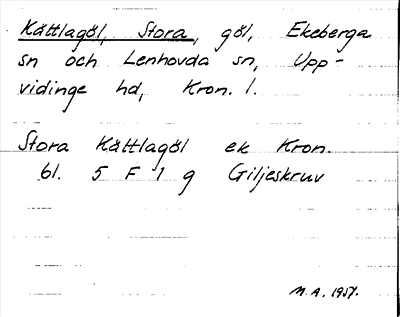 Kättlagöl, Stora, göl, Ekeberga
sn och Lenhovda sn, Upp-
vidinge hd, Kron. l.
Stora Kättlagöl ek Kron.
bl. 5 F 1 g Giljeskruv
M.A. 1957.